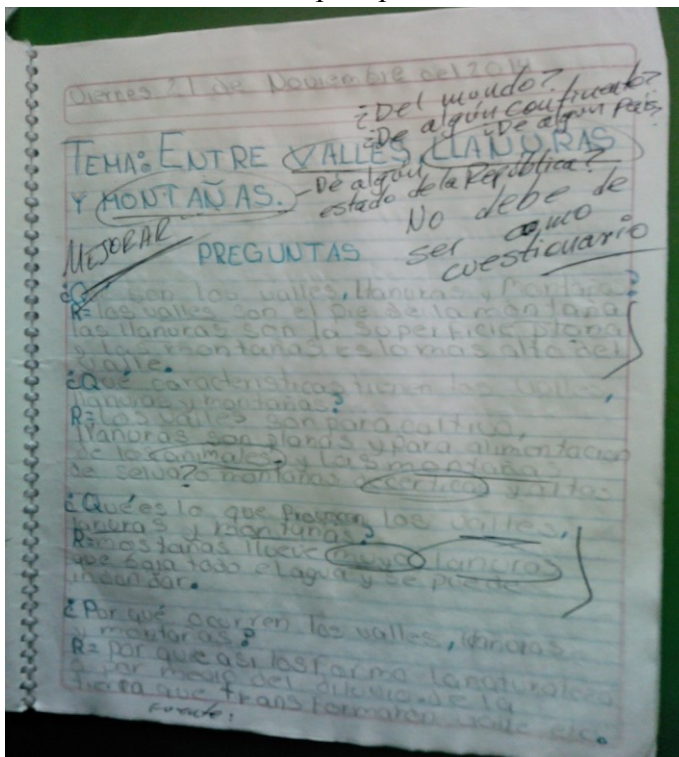 Viernes 21 de Noviembre del 2014
¿Del mundo?
¿De algún continente?
¿De algún País?
TEMA: ENTRE VALLES, LLANURAS
Y MONTAÑAS.
De algún
estado de la República?
No debe de
ser como
cuesticuario
MEJORAR
PREGUNTAS
¿Qué son los valles, llanuras y montañas?
R= los valles son el pie de la montaña
las llanuras son la superficie plana
y las montañas es lo mas alto del
valle.
¿Qué caracteristicas tienen los valles,
llanuras y montañas?
R= Los valles son para cultivo,
llanuras son planas y para alimentacion
de los animales y las montañas
de selva? montañas y altas
¿Qué es lo que los valles,
lanuras y montañas?
R= montañas llueve muyo lanuras
que baja todo el agua y se puede
inondar.
¿Por qué ocurren los valles, llanuras
y montañas?
R= por que asi los forma la naturaleza
o por medio del diluvio de la
tierra que transformaron valle etc.
Fuente: